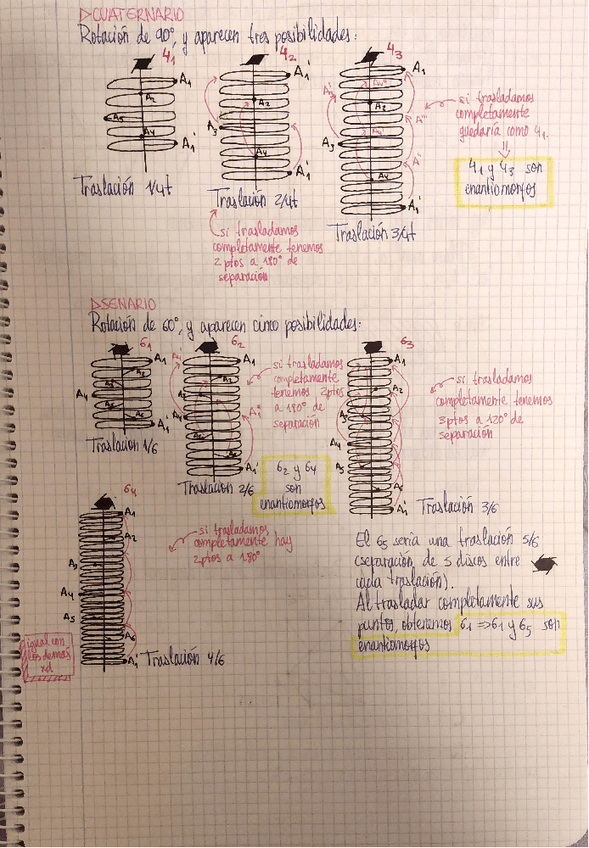 ▷CUATERNARIO
Rotación de 90°, y aparecen tres posibilidades:
4₁
A₁
A₂
A₃
A₄
A₁'
Traslación 1/4t
4₂
A₁
A₂
A₃
A₄
A₁'
Traslación 2/4t
si trasladamos
completamente tenemos
2 ptos a 180° de
separación
4₃
A₁
A₂
A₃
A₄
A₁'
Traslación 3/4t
si trasladamos
completamente
quedaría como 4₁.
4₁ y 4₃ son
enantiomorfos
▷SENARIO
Rotación de 60°, y aparecen cinco posibilidades:
6₁
A₁
A₄
A₁'
Traslación 1/6
6₂
A₁
A₄
A₁'
Traslación 2/6
si trasladamos
completamente
tenemos 2ptos
a 180° de
separación
6₂ y 6₄
son
enantiomorfos
6₃
A₁
A₂
A₃
A₄
A₅
A₆
A₁'
Traslación 3/6
si trasladamos
completamente tenemos
3ptos a 120° de
separación
6₄
A₁
A₂
A₃
A₄
A₅
A₆
A₁'
Traslación 4/6
si trasladamos
completamente hay
2ptos a 180°
igual con
los demás
xd
El 6₅ sería una traslación 5/6
(separación de 5 discos entre
cada traslación).
Al trasladar completamente sus
puntos, obtenemos 6₁ ⇒ 6₁ y 6₅ son
enantiomorfos